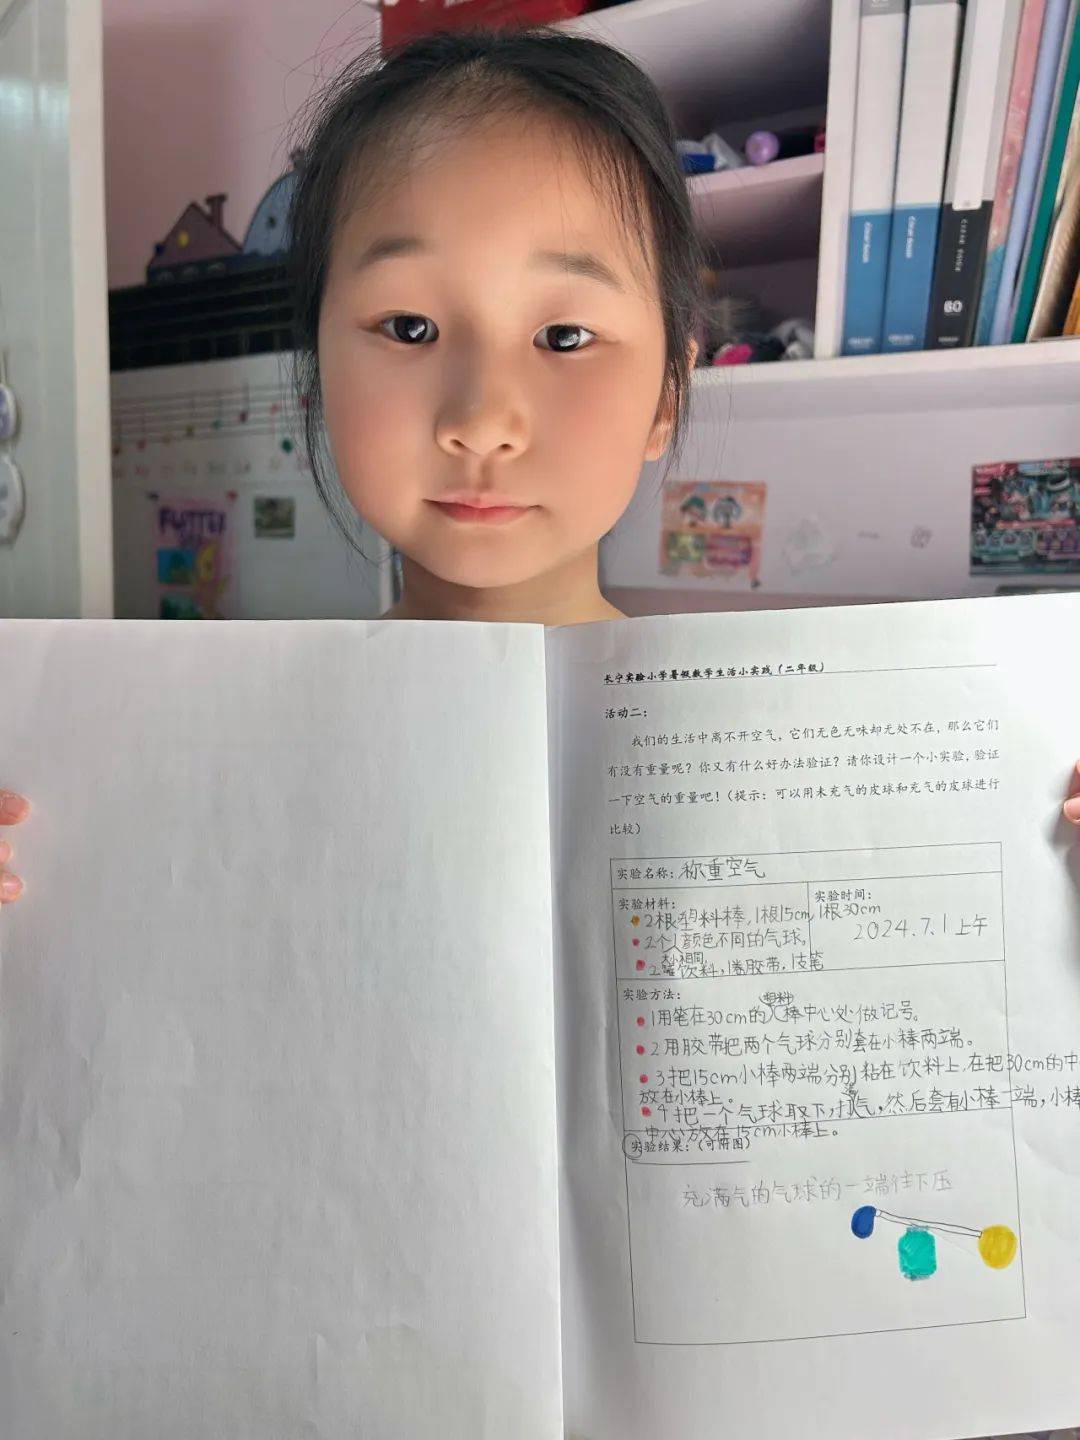 60
长宁实验小学暑假数学生活小实践（二年级）
活动二：
我们的生活中离不开空气，它们无色无味却无处不在，那么它们
有没有重量呢？你又有什么好办法验证？请你设计一个小实验，验证
一下空气的重量吧！（提示：可以用未充气的皮球和充气的皮球进行
比较）
实验名称：称重空气
实验材料：
2根塑料棒，1根15cm，1根30cm
2个颜色不同的气球，
大小相同，
2罐饮料，1卷胶带，1支笔
实验时间：
2024.7.1上午
实验方法：
塑料
1用笔在30cm的棒中心处做记号。
2用胶带把两个气球分别套在小棒两端。
3把15cm小棒两端分别粘在饮料上，在把30cm的中
放在小棒上。
4把一个气球取下，打气，然后套有小棒一端，小棒
中心放在15cm小棒上。
实验结果：（可附图）
充满气的气球的一端往下压